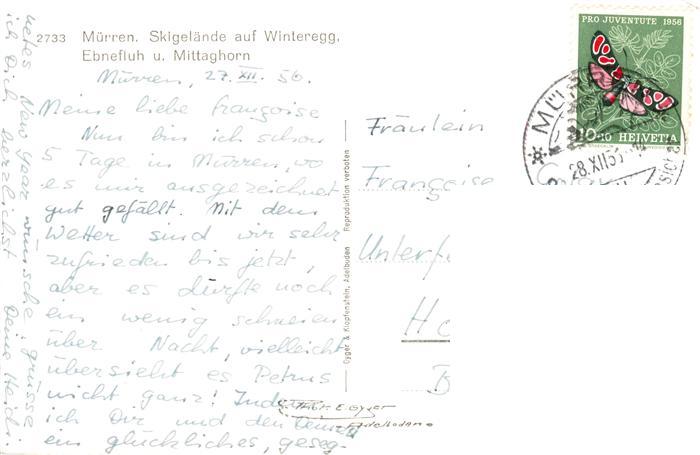 2733 Mürren. Skigelände auf Winteregg,
Ebnefluh u. Mittaghorn
Mürren, 27. XII. 56.
Meine liebe françoise
Nun bin ich schon
5 Tage in Mürren, wo
es mir ausgezeichnet
gut gefällt. Mit dem
Wetter sind wir sehr
zufrieden bis jetzt,
aber es dürfte noch
ein wenig schneien
über Nacht, vielleicht
übersieht es Petrus
nicht ganz! Indem
ich Dir und den Deinen
ein glückliches, geseg-
netes New Year wünsche, grüsse
ich Dich herzlichst Deine Heidi.
Gyger & Klopfenstein, Adelboden Reproduktion verboten
Phot. E. Gyger
Adelboden
PRO JUVENTUTE 1956
10+10 HELVETIA
MÜ
28.XII.5
Fräulein
Françoise
Unterf
H
B